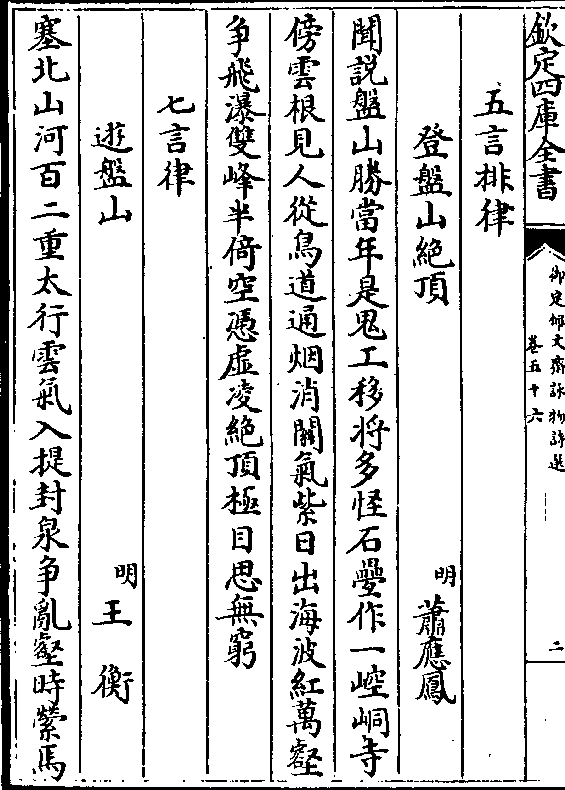 欽定四庫全書
御定佩文齋詠物詩選
卷五十六
二
五言排律
登盤山絶頂
明 蕭應鳳
聞説盤山勝當年是鬼工移将多怪石壘作一崆峒寺
傍雲根見人從鳥道通烟消關氣紫日出海波紅萬壑
争飛瀑雙峰半倚空憑虚凌絶頂極目思無窮
七言律
遊盤山
明 王衡
塞北山河百二重太行雲氣入提封泉争亂壑時縈馬